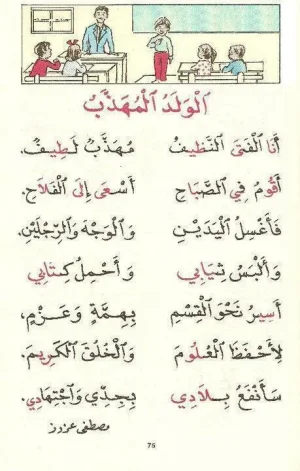 الْوَلَدُ الْمُهَذَّبُ
أَنَا الْفَتَى النَّظِيفُ مُهَذَّبُ لَطِيفُ.
أَقُومُ فِي الصَّبَاحِ أَسْعَى إِلَى الْفَلَاحِ.
فَأَغْسِلُ الْيَدَيْنِ وَالْوَجْهَ وَالرِّجْلَيْنِ.
وَأَلْبَسُ ثِيَابِي وَأَحْمِلُ كِتَابِي
أَسِيرُ نَحْوَ الْقِسْمِ بِهِمَّةٍ وَعَزْمٍ،
لِأَحْفَظَ الْعُلُومَ وَالْخُلُقَ الْكَرِيمَ.
سَأَنْفَعُ بِلَادِي بِجِدِّي وَاجْتِهَادِي.
مصطفى عزوز
75